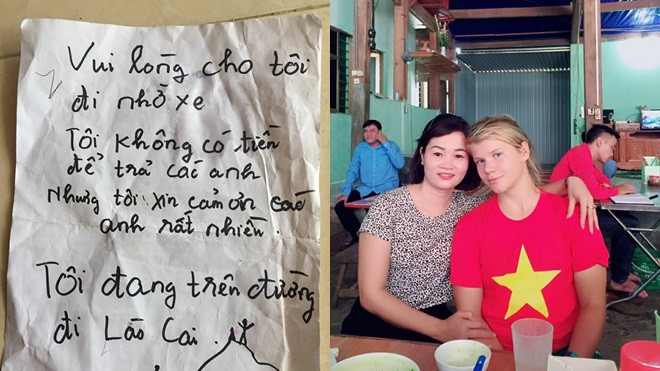 Vui lòng cho tôi
đi nhờ xe
Tôi không có tiền
để trả các anh
Nhưng tôi xin cảm ơn các
anh rất nhiều.
Tôi đang trên đường
đi Lào Cai.